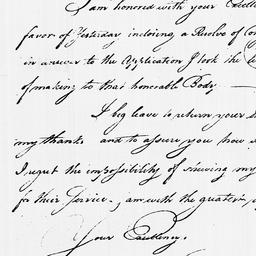 I am honored with your Excellen
favor of Yesterday inclosing a Resolve of Con
in answer to the Application I took the li
of making to that honorable Body —
I beg leave to return your
my thanks and to assure you how
I regret the impossibility of shewing my
for their Service, I am with the greatest
Your Excellency.